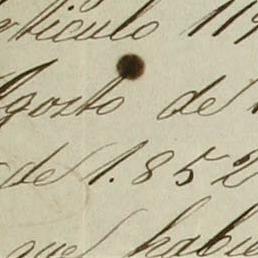 articulo 11
Agosto de
de 1.852
que habi